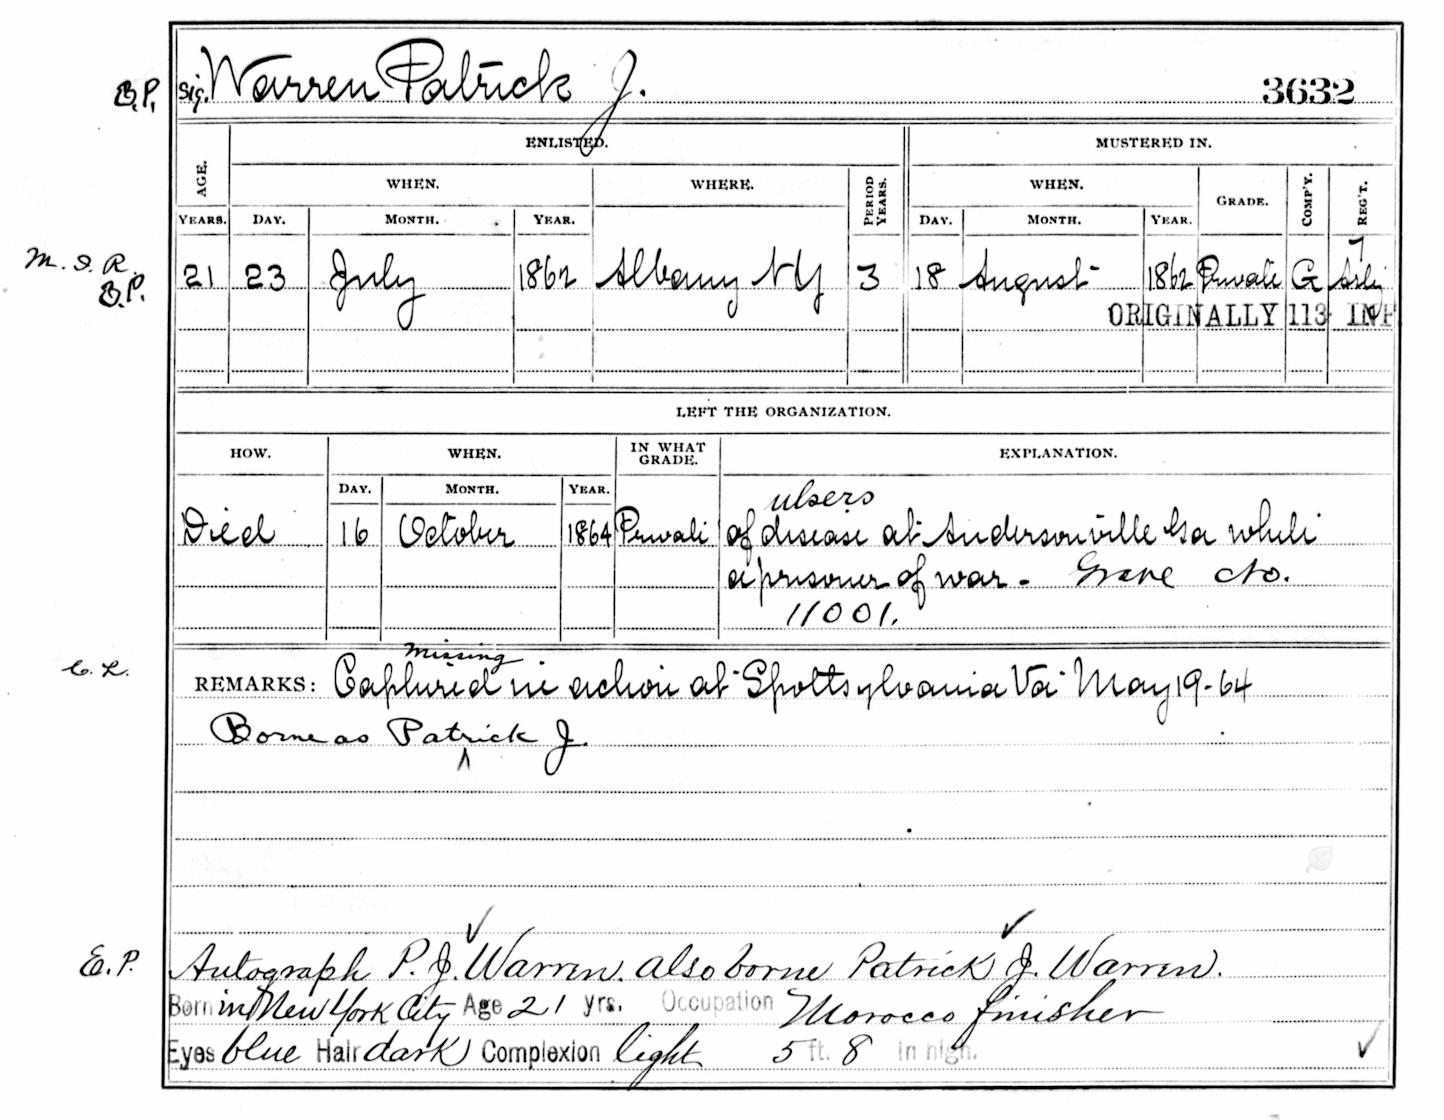 B.P. Sig. Warren Patrick J. 3632
ENLISTED. MUSTERED IN.
AGE. WHEN. WHERE. PERIOD YEARS. WHEN. GRADE. COMP'Y. REG'T.
YEARS. DAY. MONTH. YEAR. DAY. MONTH. YEAR.
M. I. R. 7
B.P. 21 23 July 1862 Albany NY 3 18 August 1862 Private G Arty
ORIGINALLY 113 INF
LEFT THE ORGANIZATION.
HOW. WHEN. IN WHAT GRADE. EXPLANATION.
DAY. MONTH. YEAR.
ulsers
Died 16 October 1864 Private of disease at Andersonville Ga while
a prisoner of war. Grave No.
11001.
missing
C. L. REMARKS: Captured in action at Spottsylvania Va May 19-64
Borne as Patrick J.
E. P. Autograph P. J. Warren. also borne Patrick J. Warren.
Born in New York City Age 21 yrs. Occupation Morocco finisher
Eyes blue Hair dark Complexion light 5 ft. 8 in high.